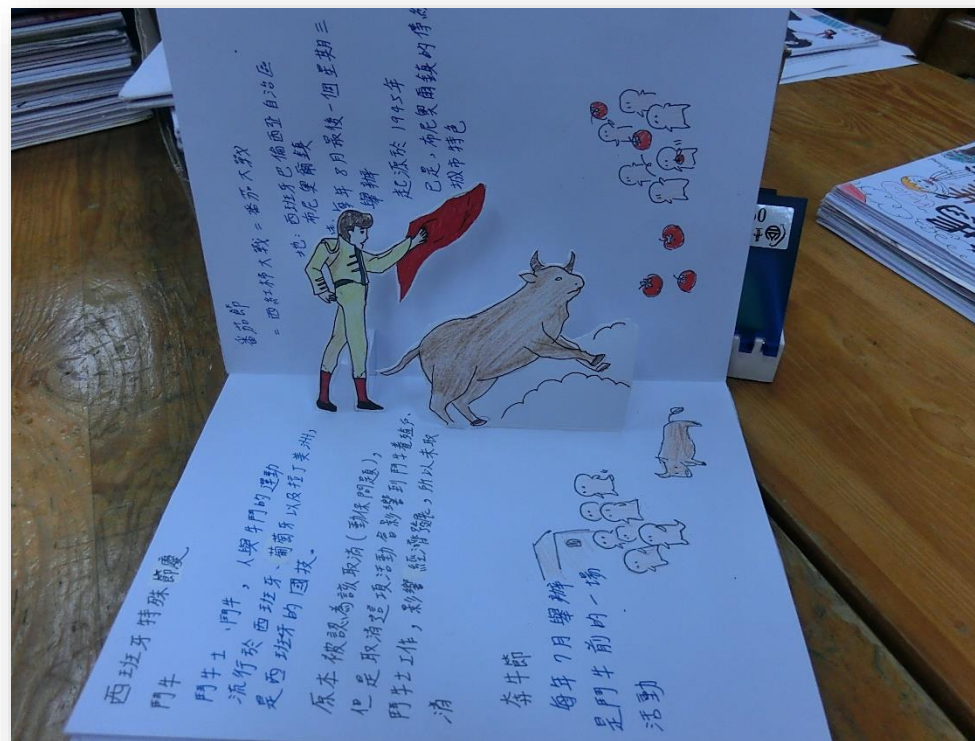 番茄節
=西紅柿大戰=番茄大戰
地:西班牙巴倫西亞自治區
布尼奧爾鎮
每年8月最後一個星期三
舉辦
起源於1945年
已是,布尼奧爾鎮的傳
城市特色
西班牙特殊節慶
鬥牛
鬥牛士,鬥牛,人與牛鬥的運動
流行於西班牙、葡萄牙以及拉丁美洲,
是西班牙的國技。
原本被認為該取消(動保問題),
但是取消這項活動會影響到鬥牛養殖戶、
鬥牛士工作,影響經濟發展,所以未取
消
奔牛節
每年7月舉辦
是鬥牛前的一場
活動